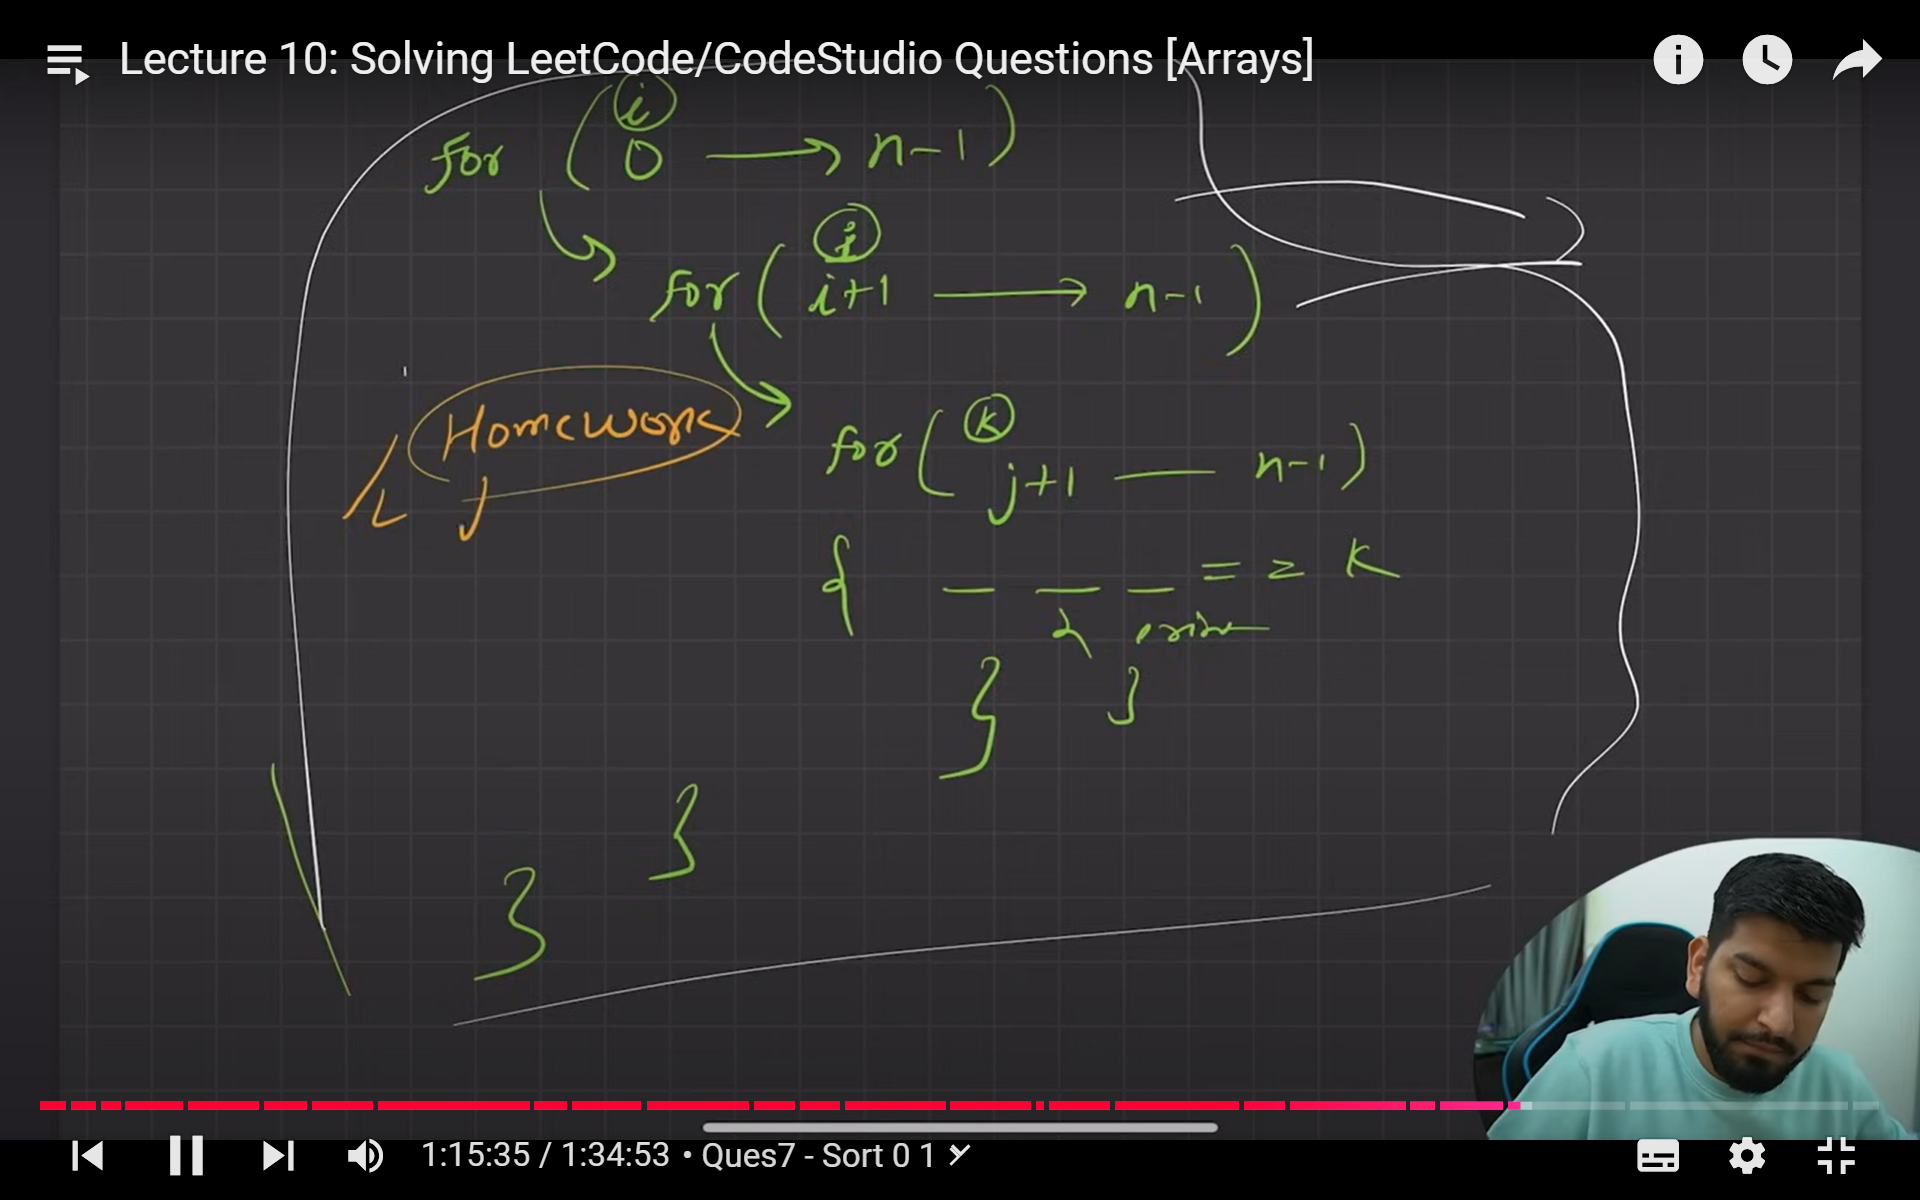 Lecture 10: Solving LeetCode/CodeStudio Questions [Arrays]
i
for ( 0 → n-1 )
j
for ( i+1 → n-1 )
Homework
k
for ( j+1 — n-1 )
{ _ _ _ == k
{
} }
}
}
1:15:35 / 1:34:53 • Ques7 - Sort 0 1